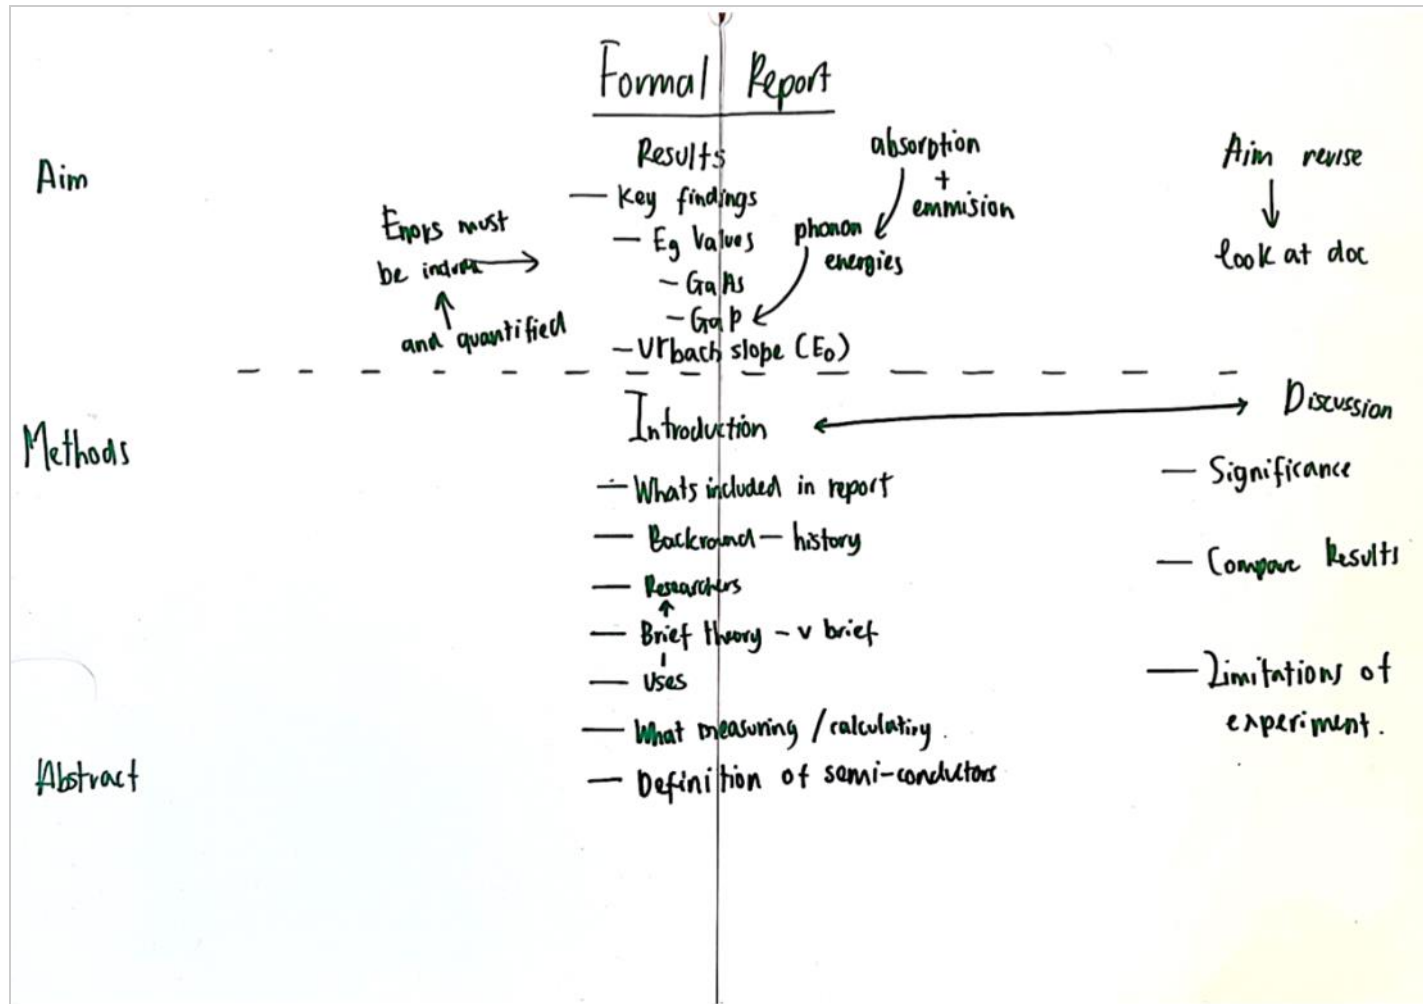 Formal Report
Aim
Results
– Key findings
– Eg Values
– GaAs
– GaP
– Urbach slope (E₀)
absorption
+
emmision
phonon
energies
Errors must
be
and quantified
Aim revise
look at doc
Methods
Introduction
– Whats included in report
– Backround – history
– Researchers
– Brief theory – v brief
– Uses
– What measuring / calculating.
– Definition of semi-conductors
Discussion
– Significance
– Compare Results
– Limitations of
experiment.
Abstract